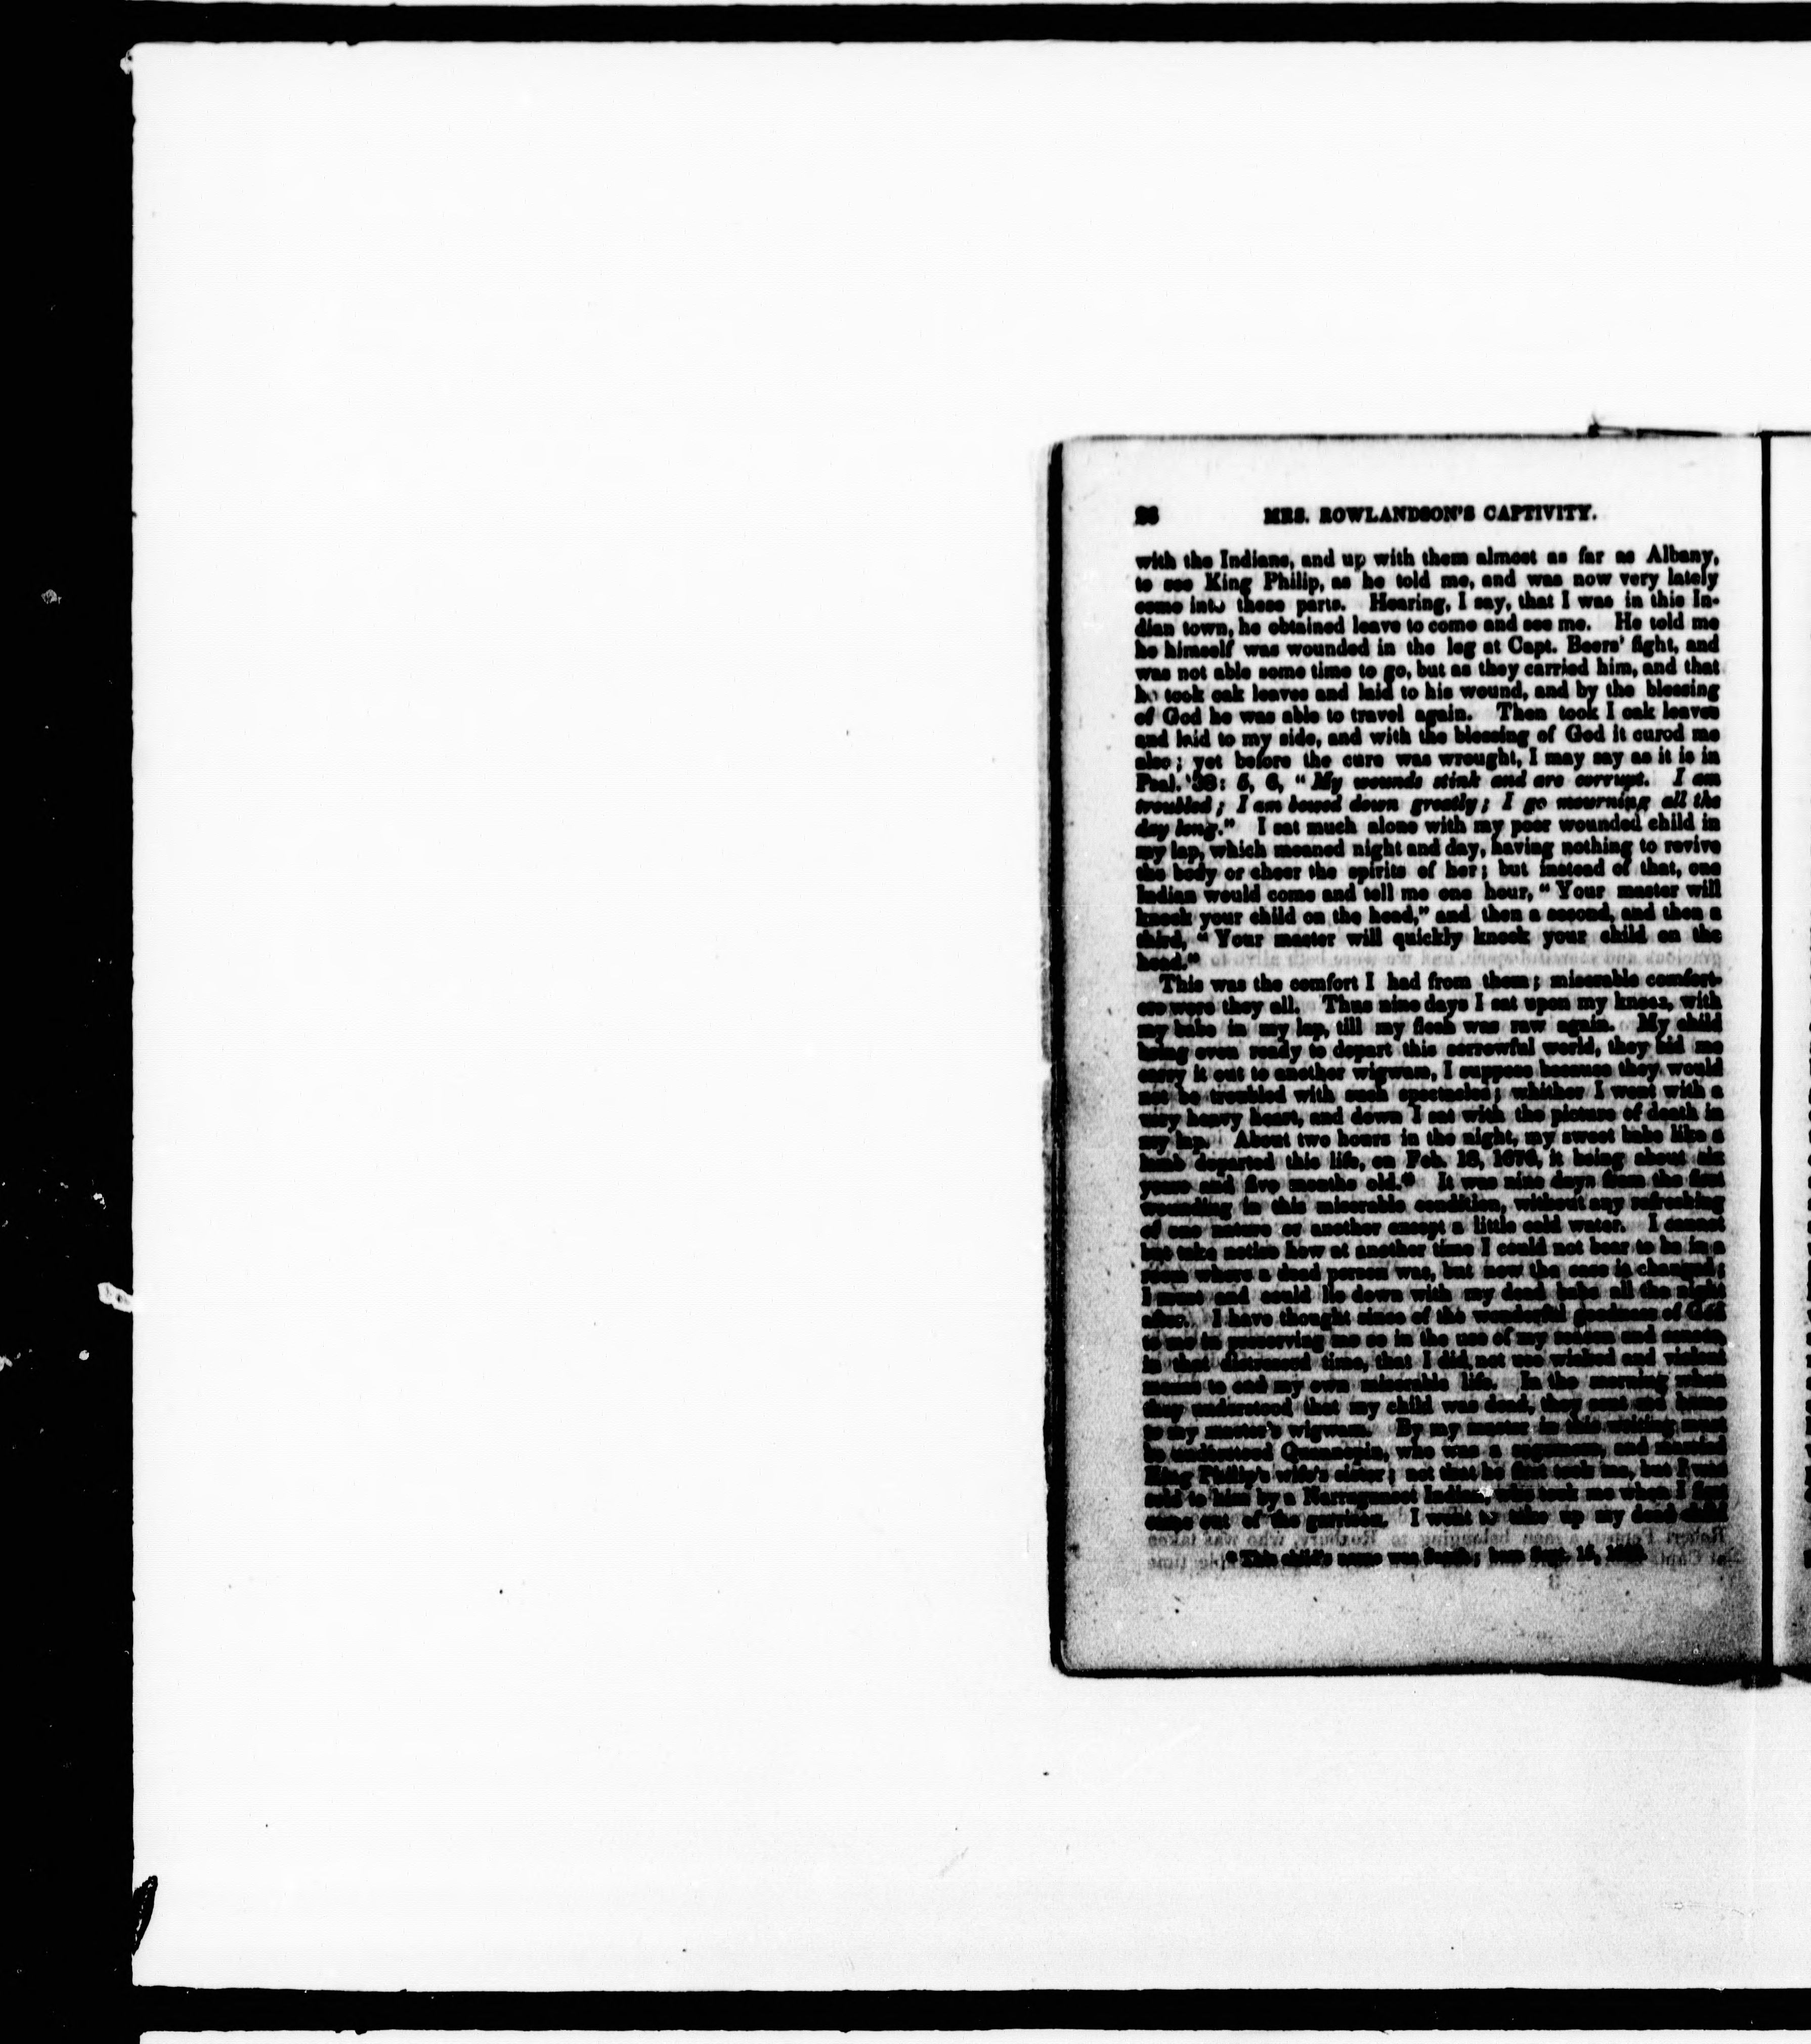 26 MRS. ROWLANDSON'S CAPTIVITY.
with the Indians, and up with them almost as far as Albany,
to see King Philip, as he told me, and was now very lately
come into these parts. Hearing, I say, that I was in this In-
dian town, he obtained leave to come and see me. He told me
he himself was wounded in the leg at Capt. Beers' fight, and
was not able some time to go, but as they carried him, and that
he took oak leaves and laid to his wound, and by the blessing
of God he was able to travel again. Then took I oak leaves
and laid to my side, and with the blessing of God it cured me
also; yet before the cure was wrought, I may say as it is in
Psal. 38: 5, 6, "My wounds stink and are corrupt. I am
troubled; I am bowed down greatly; I go mourning all the
day long." I sat much alone with my poor wounded child in
my lap, which moaned night and day, having nothing to revive
the body or cheer the spirits of her; but instead of that, one
Indian would come and tell me one hour, "Your master will
knock your child on the head," and then a second, and then a
third, "Your master will quickly knock your child on the
head."
This was the comfort I had from them; miserable comfort-
ers were they all. Thus nine days I sat upon my knees, with
my babe in my lap, till my flesh was raw again. My child
being even ready to depart this sorrowful world, they bid me
carry it out to another wigwam, I suppose because they would
not be troubled with such spectacles; whither I went with a
very heavy heart, and down I sat with the picture of death in
my lap. About two hours in the night, my sweet babe like a
lamb departed this life, on Feb. 18, 1676, it being about six
years and five months old.* It was nine days from the first
wounding in this miserable condition, without any refreshing
of one nature or another except a little cold water. I cannot
but take notice how at another time I could not bear to be in a
room where a dead person was, but now the case is changed;
I must and could lie down with my dead babe all the night
after. I have thought since of the wonderful goodness of God
to me in preserving me so in the use of my reason and senses
in that distressed time, that I did not use wicked and violent
means to end my own miserable life. In the morning when
they understood that my child was dead, they sent me home
to my master's wigwam. By my master in this writing must
be understood Quannopin, who was a sagamore, and married
King Philip's wife's sister; not that he first took me, but I was
sold to him by a Narraganset Indian, who took me when I first
came out of the garrison. I went to take up my dead child
* This child's name was Sarah; born Sept. 15,